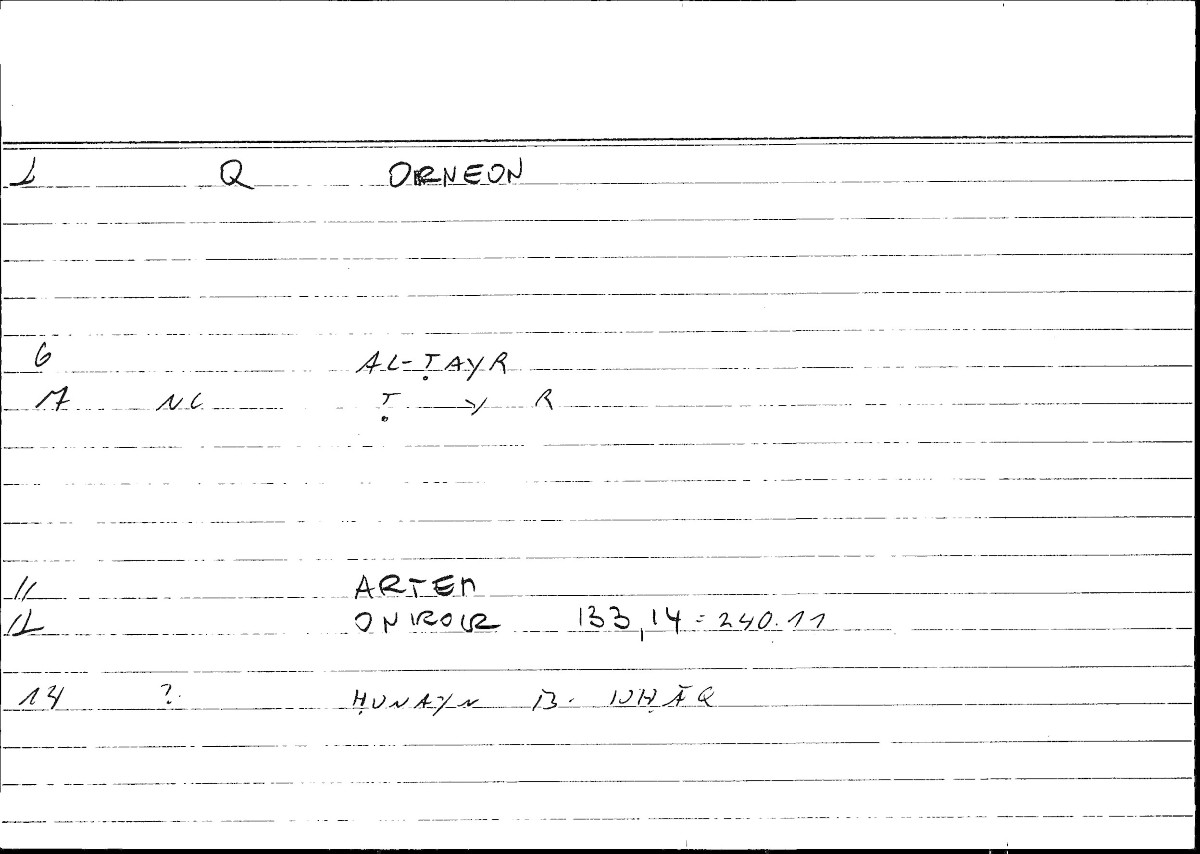 1 Q ORNEON
6 AL-ṬAYR
17 NC Ṭ Y R
11 ARTEM
12 ONIROCR 133,14 = 240.11
14 ? ḤUNAYN B. ISḤĀQ